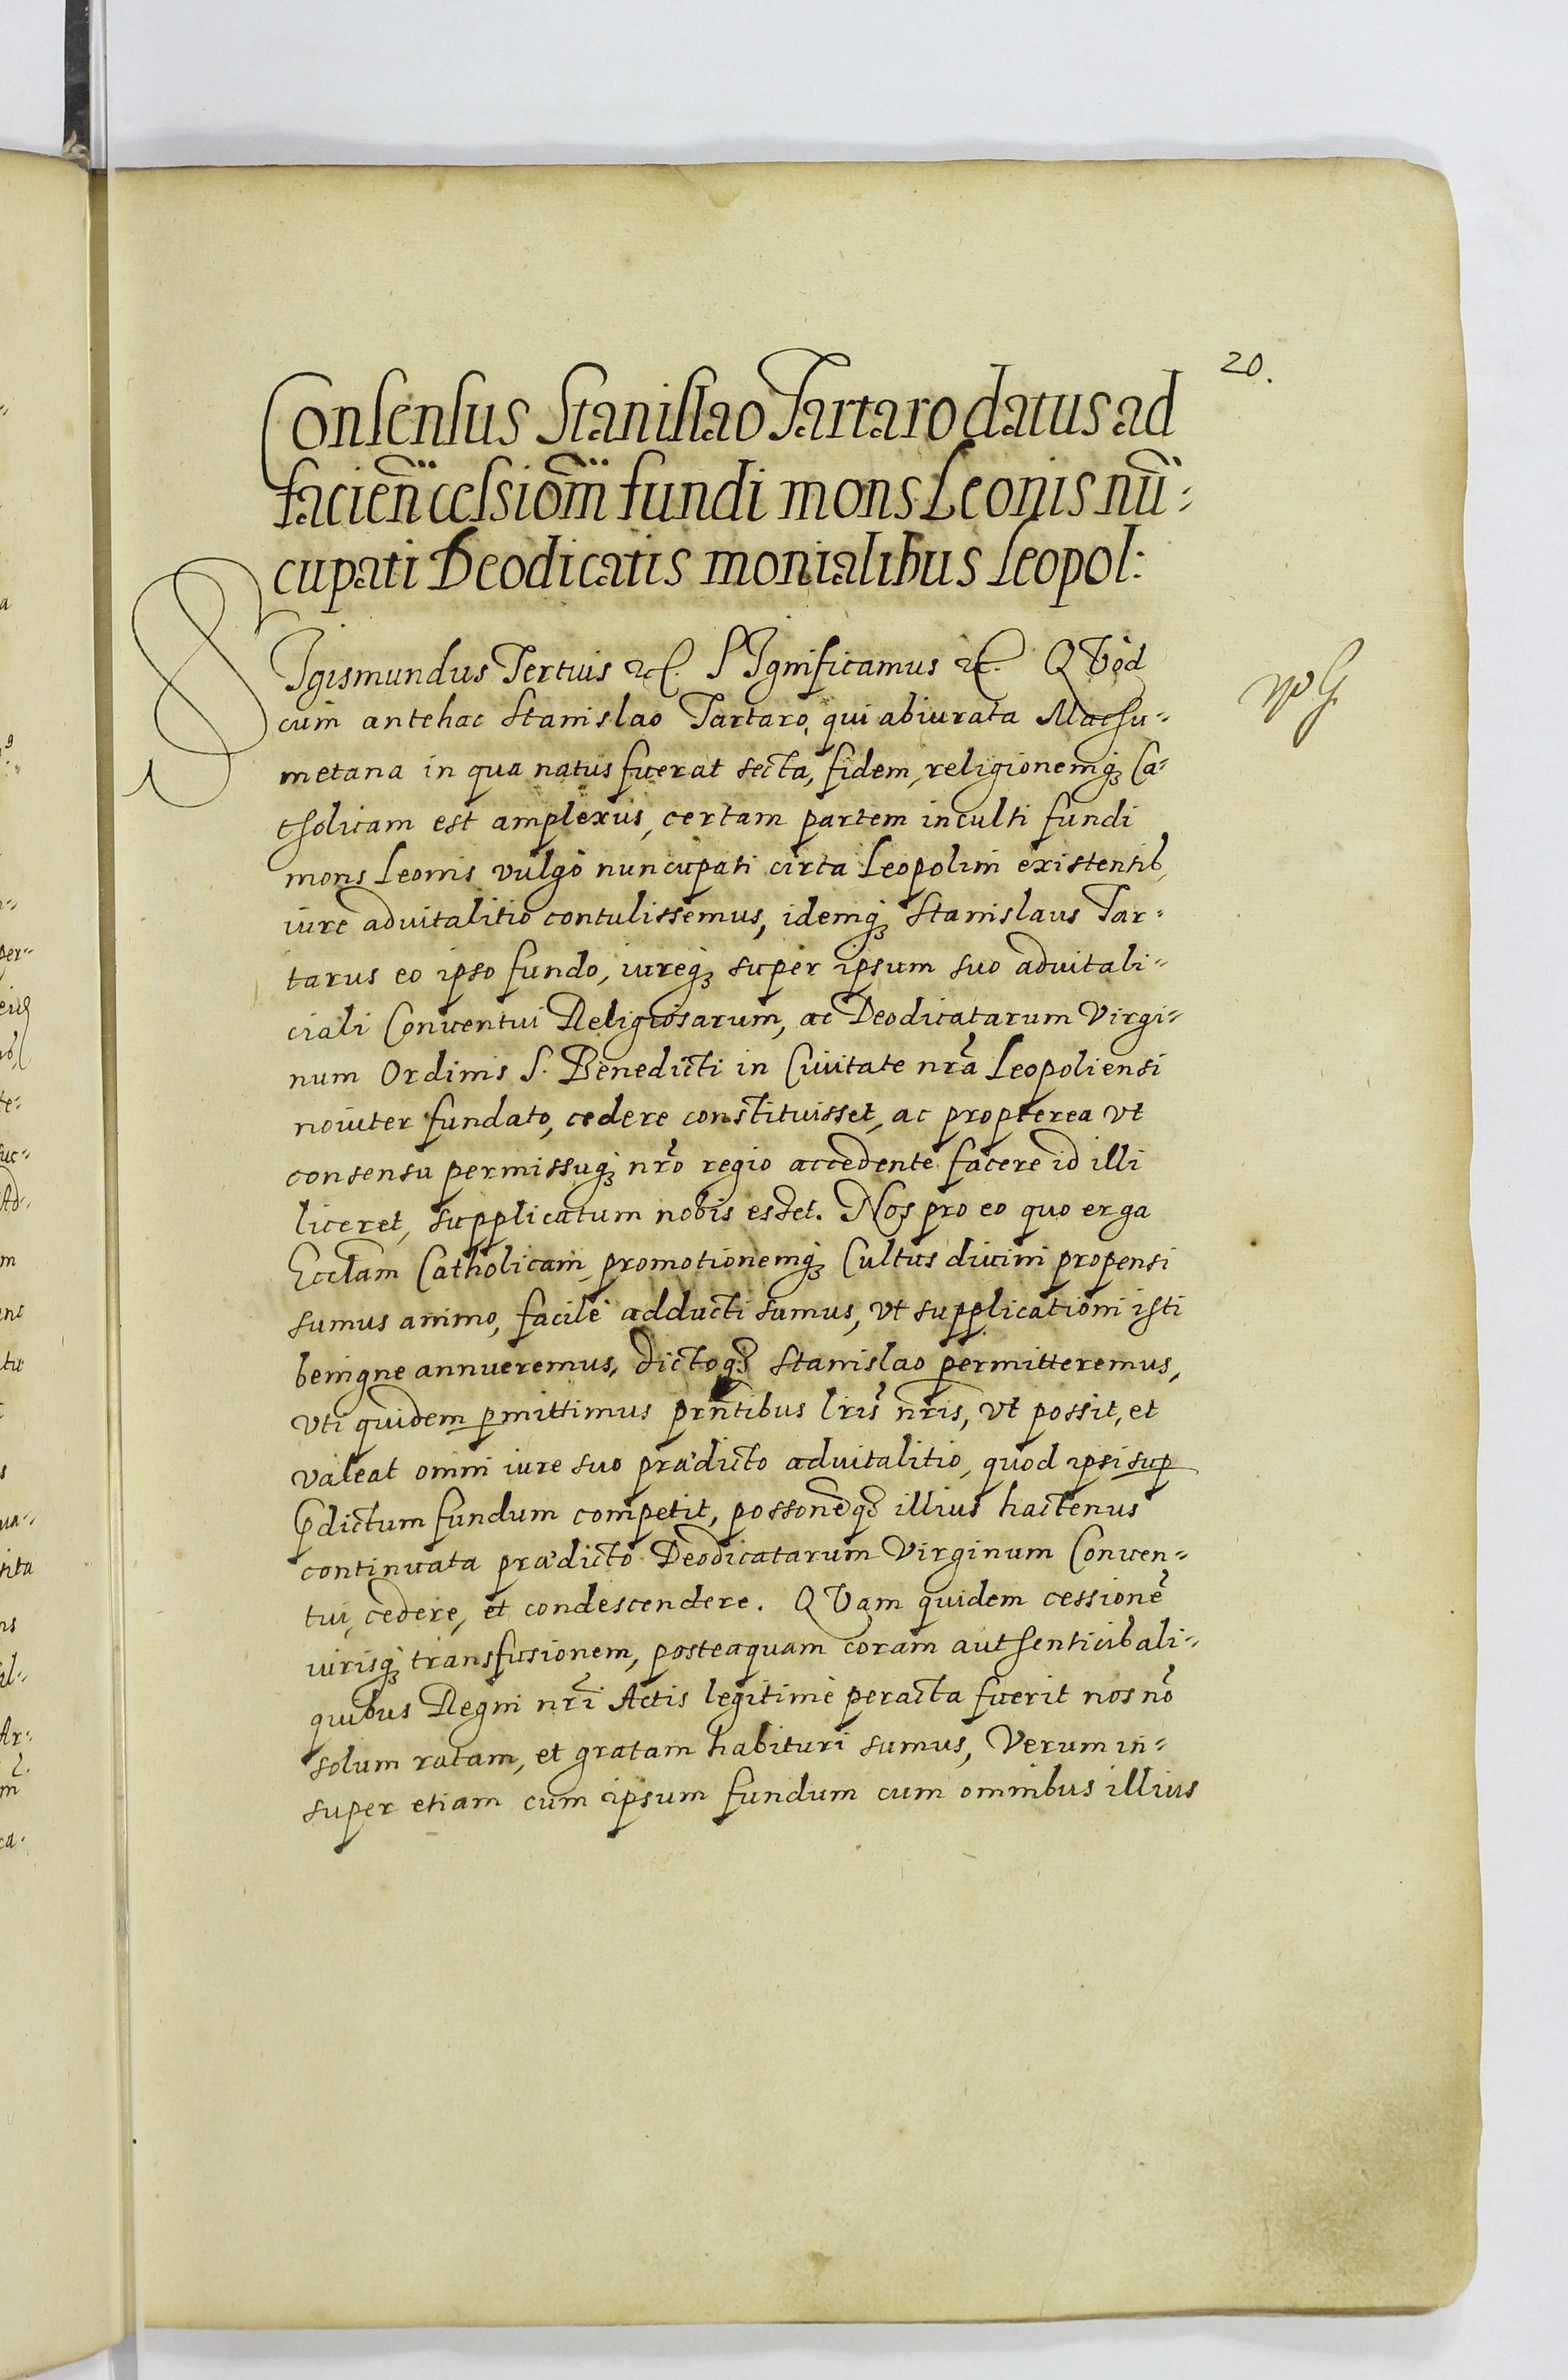 20.
Consensus Stanislao Tartaro datus ad
facien̄ cessiōm fundi mons Leonis nū=
cupati Deodicatis monialibus Leopol:
SIgismundus Tertius etc. SIgnificamus etc. QVòd
cum antehac Stanislao Tartaro, qui abiurata Machu=
metana in qua natus fuerat secta, fidem, religionemq; Ca=
tholicam est amplexus, certam partem inculti fundi
mons Leonis vulgò nuncupati circa Leopolim existentib,
iure advitalitio contulissemus, idemq; Stanislaus Tar=
tarus eo ipso fundo, iureq; super ipsum suo advitali=
ciali Conventui Religiosarum, ac Deodicatarum Virgi=
num Ordinis S. Benedicti in Civitate nrã Leopoliensi
noviter fundato, cedere constituisset, ac propterea vt
consensu permissuq; nrõ regio accedente facere id illi
liceret, supplicatum nobis esset. Nos pro eo quo erga
Ecclam Catholicam, promotionemq; Cultus divini propensi
sumus animo, facilè adducti sumus, vt supplicationi isti
benigne annueremus, dictoq; Stanislao permitteremus,
vti quidem pmittimus prñtibus lris̃ nris̃, vt possit, et
valeat omni iure suo prædicto advitalitio, quod ipsi sup
p̃dictum fundum competit, possoneq; illius hactenus
continuata prædicto Deodicatarum Virginum Conven=
tui, cedere, et condescendere. QVam quidem cessionẽ
iurisq; transfusionem, posteaquam coram authenticib ali=
quibus Regni nrĩ Actis legitimè peracta fuerit nos nõ
solum ratam, et gratam habituri sumus, Verum in=
super etiam cum ipsum fundum cum omnibus illius